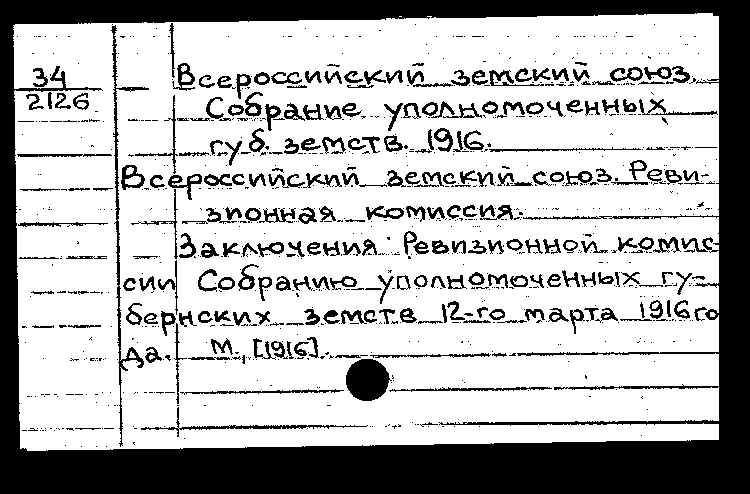 34
2126
Всероссийский земский союз.
Собрание уполномоченных
губ. земств. 1916.
Всероссийский земский союз. Реви-
зионная комиссия.
Заключения Ревизионной комис-
сии Собранию уполномоченных гу-
бернских земств 12-го марта 1916 го
да. М., [1916].